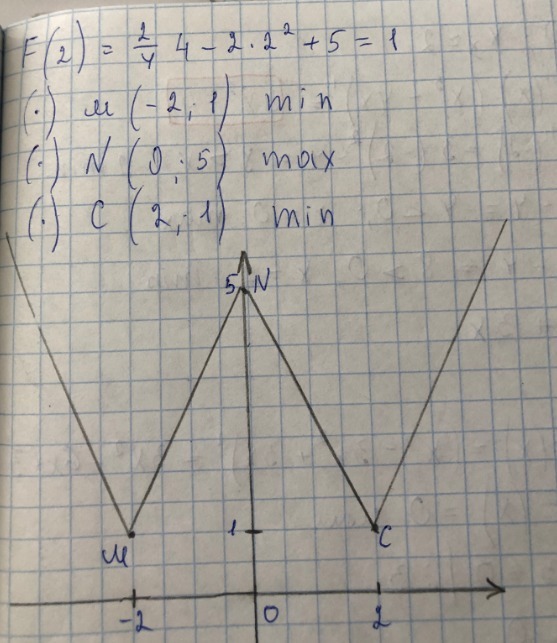 F(2) = 2/4 4 - 2 · 2² + 5 = 1
(·) М (-2; 1) min
(·) N (0; 5) max
(·) C (2; 1) min
5 N
1
М
C
-2 0 2